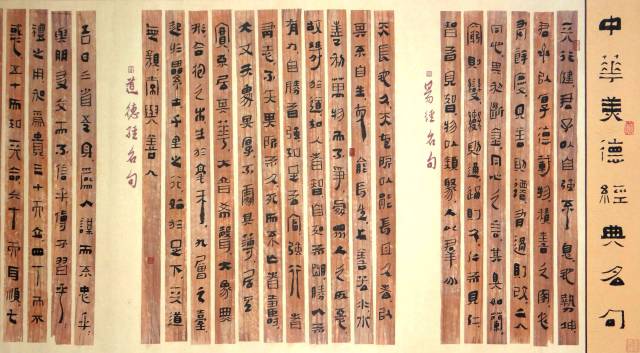 中華美德經典名句
天行健君子以自強不息地勢坤
君子以厚德載物積善之家必
有餘慶見善則遷有過則改二人
同心其利斷金同心之言其臭如蘭
窮則變變則通通則久仁者見仁
智者見智物以類聚人以群分
易經名句
天長地久天地所以能長且久者以
其不自生故能長生上善若水水
善利萬物而不爭處眾人之所惡
故幾於道知人者智自知者明勝人者
有力自勝者強知足者富強行者
有志不失其所者久死而不亡者壽
大丈夫處其厚不居其薄處其
實不居其華大音希聲大象無
形合抱之木生於毫末九層之臺
起於累土千里之行始於足下天道
無親常與善人
道德經名句
吾日三省吾身為人謀而不忠乎
與朋友交而不信乎傳不習乎
禮之用和為貴三十而立四十而不
惑五十而知天命六十而耳順七